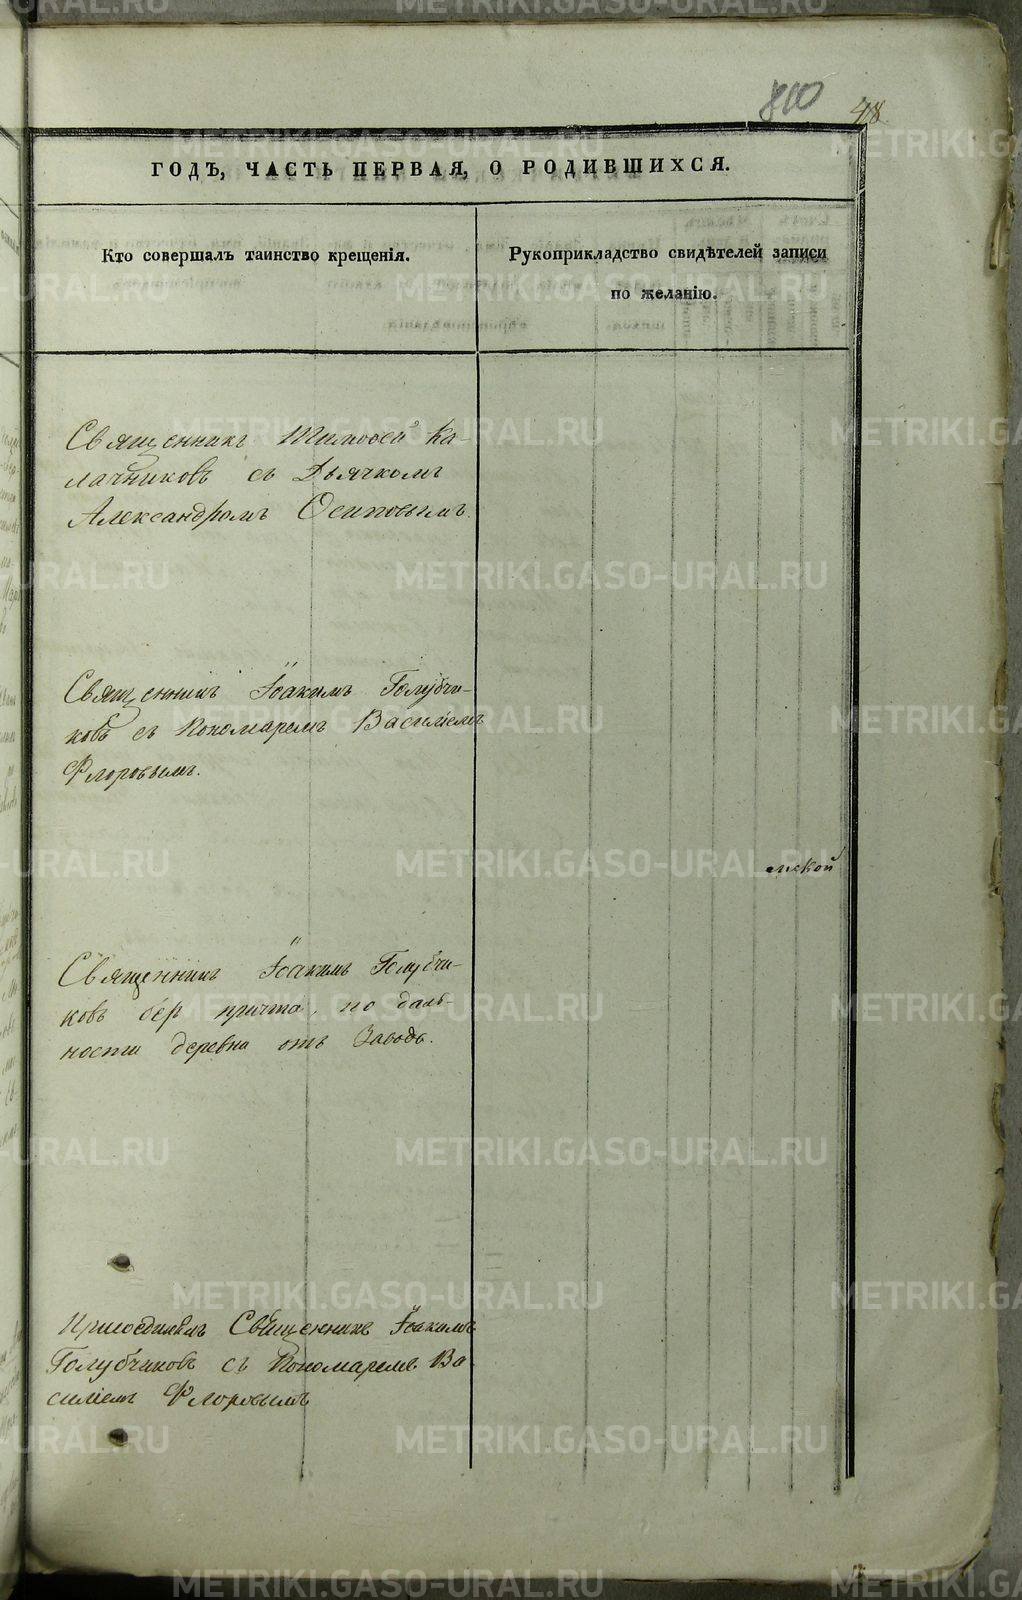 800 48
ГОДЪ, ЧАСТЬ ПЕРВАЯ, О РОДИВШИХСЯ.
Кто совершалъ таинство крещенія.
Рукоприкладство свидѣтелей записи
по желанію.
Священникъ Тимоѳей Ка-
лачниковъ съ Дьячкомъ
Александромъ Осиповымъ.
Священникъ Іоакимъ Голубчи-
ковъ съ Пономаремъ Василіемъ
Флоровымъ.
Священникъ Іоакимъ Голубчи-
ковъ без причта, по даль-
ности деревни отъ Завода.
Присоединялъ Священникъ Іоакимъ
Голубчиковъ съ Пономаремъ Ва-
силіемъ Флоровымъ
METRIKI.GASO-URAL.RU